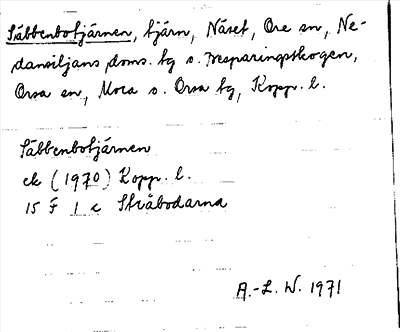 Säbbenbotjärnen, tjärn, Näset, Ore sn, Ne-
dansiljans doms. tg o. Besparingsskogen,
Orsa sn, Mora o. Orsa tg, Kopp. l.
Säbbenbotjärnen
ek (1970) Kopp. l.
15 F 1 c Skräbodarna
A.-L. W. 1971